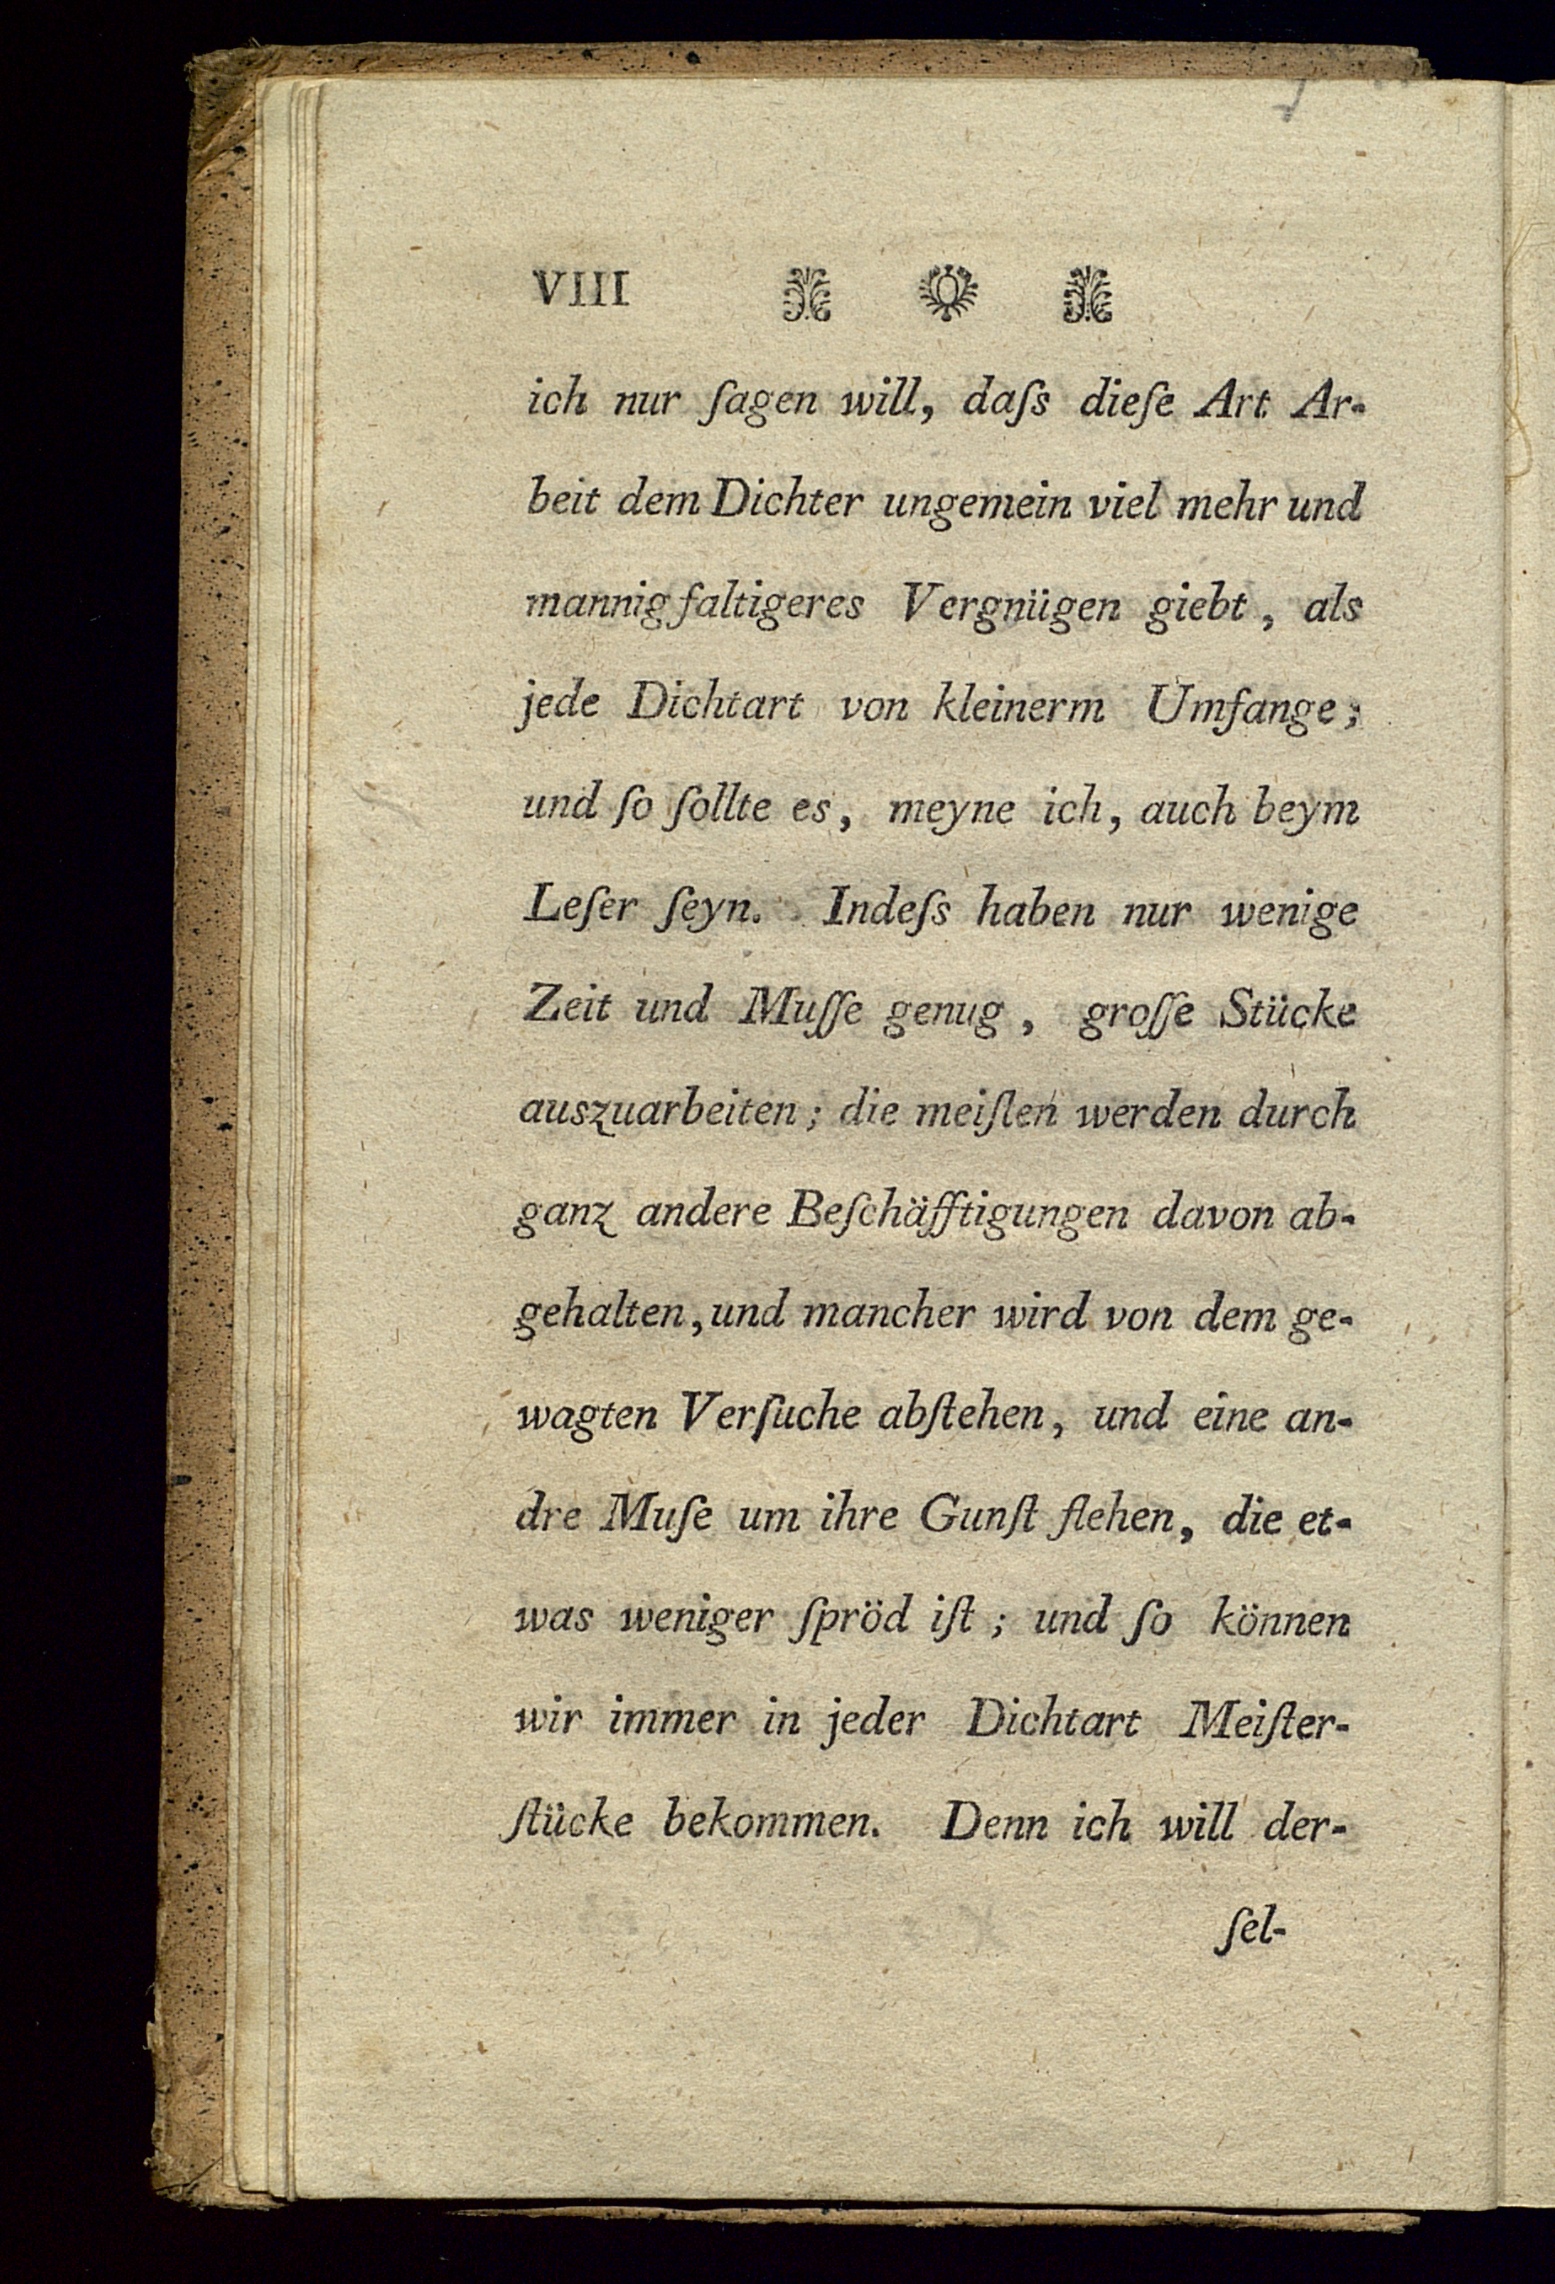 VIII
ich nur ſagen will, daſs dieſe Art Ar-
beit dem Dichter ungemein viel mehr und
mannigfaltigeres Vergnügen giebt, als
jede Dichtart von kleinerm Umfange;
und ſo ſollte es, meyne ich, auch beym
Leſer ſeyn. Indeſs haben nur wenige
Zeit und Muſſe genug, groſſe Stücke
auszuarbeiten; die meiſten werden durch
ganz andere Beſchäfftigungen davon ab-
gehalten, und mancher wird von dem ge-
wagten Verſuche abſtehen, und eine an-
dre Muſe um ihre Gunſt flehen, die et-
was weniger ſpröd iſt; und ſo können
wir immer in jeder Dichtart Meiſter-
ſtücke bekommen. Denn ich will der-
ſel-